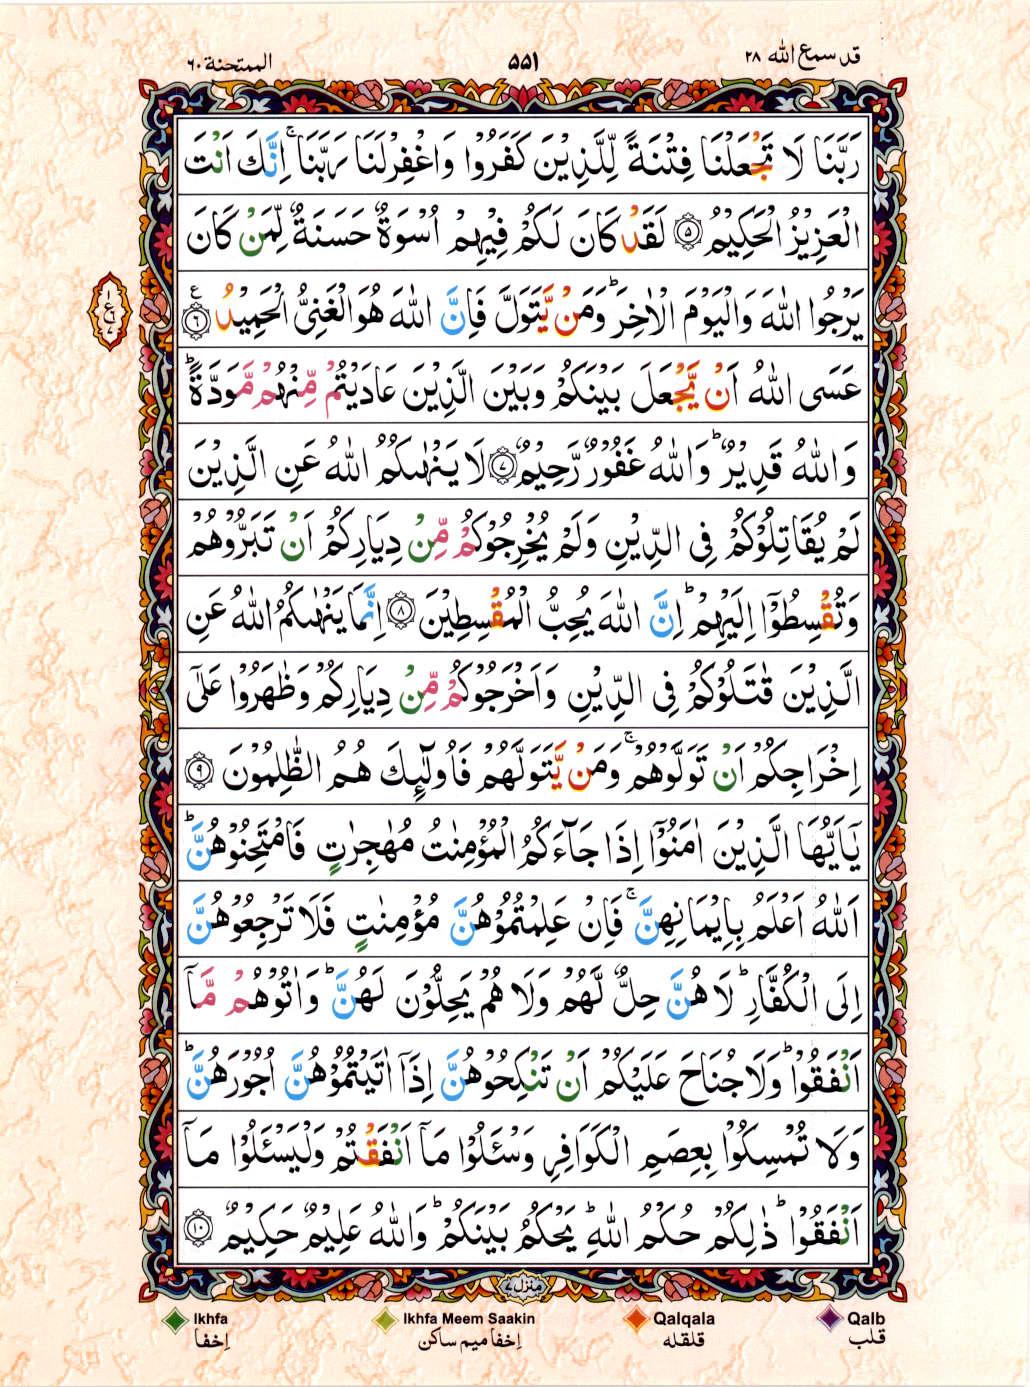 قد سمع الله ٢٨
٥٥١
الممتحنة ٦٠
رَبَّنَا لَا تَجْعَلْنَا فِتْنَةً لِّلَّذِيْنَ كَفَرُوْا وَاغْفِرْلَنَا رَبَّنَا ۚ اِنَّكَ اَنْتَ
الْعَزِيْزُ الْحَكِيْمُ ﴿٥﴾ لَقَدْ كَانَ لَكُمْ فِيْهِمْ اُسْوَةٌ حَسَنَةٌ لِّمَنْ كَانَ
يَرْجُوا اللّٰهَ وَالْيَوْمَ الْاٰخِرَ ؕ وَمَنْ يَّتَوَلَّ فَاِنَّ اللّٰهَ هُوَ الْغَنِىُّ الْحَمِيْدُ ﴿٦﴾
عَسَى اللّٰهُ اَنْ يَّجْعَلَ بَيْنَكُمْ وَبَيْنَ الَّذِيْنَ عَادَيْتُمْ مِّنْهُمْ مَّوَدَّةً ؕ
وَاللّٰهُ قَدِيْرٌ ؕ وَاللّٰهُ غَفُوْرٌ رَّحِيْمٌ ﴿٧﴾ لَا يَنْهٰىكُمُ اللّٰهُ عَنِ الَّذِيْنَ
لَمْ يُقَاتِلُوْكُمْ فِى الدِّيْنِ وَلَمْ يُخْرِجُوْكُمْ مِّنْ دِيَارِكُمْ اَنْ تَبَرُّوْهُمْ
وَتُقْسِطُوْۤا اِلَيْهِمْ ؕ اِنَّ اللّٰهَ يُحِبُّ الْمُقْسِطِيْنَ ﴿٨﴾ اِنَّمَا يَنْهٰىكُمُ اللّٰهُ عَنِ
الَّذِيْنَ قٰتَلُوْكُمْ فِى الدِّيْنِ وَاَخْرَجُوْكُمْ مِّنْ دِيَارِكُمْ وَظٰهَرُوْا عَلٰٓى
اِخْرَاجِكُمْ اَنْ تَوَلَّوْهُمْ ۚ وَمَنْ يَّتَوَلَّهُمْ فَاُولٰٓئِكَ هُمُ الظّٰلِمُوْنَ ﴿٩﴾
يٰۤاَيُّهَا الَّذِيْنَ اٰمَنُوْۤا اِذَا جَآءَكُمُ الْمُؤْمِنٰتُ مُهٰجِرٰتٍ فَامْتَحِنُوْهُنَّ ؕ
اَللّٰهُ اَعْلَمُ بِاِيْمَانِهِنَّ ۚ فَاِنْ عَلِمْتُمُوْهُنَّ مُؤْمِنٰتٍ فَلَا تَرْجِعُوْهُنَّ
اِلَى الْكُفَّارِ ؕ لَا هُنَّ حِلٌّ لَّهُمْ وَلَا هُمْ يَحِلُّوْنَ لَهُنَّ ؕ وَاٰتُوْهُمْ مَّاۤ
اَنْفَقُوْا ؕ وَلَا جُنَاحَ عَلَيْكُمْ اَنْ تَنْكِحُوْهُنَّ اِذَاۤ اٰتَيْتُمُوْهُنَّ اُجُوْرَهُنَّ ؕ
وَلَا تُمْسِكُوْا بِعِصَمِ الْكَوَافِرِ وَسْـَٔلُوْا مَاۤ اَنْفَقْتُمْ وَلْيَسْـَٔلُوْا مَاۤ
اَنْفَقُوْا ؕ ذٰلِكُمْ حُكْمُ اللّٰهِ ؕ يَحْكُمُ بَيْنَكُمْ ؕ وَاللّٰهُ عَلِيْمٌ حَكِيْمٌ ﴿١٠﴾
منزل ٧
Ikhfa Ikhfa Meem Saakin Qalqala Qalb
اِخفا اِخفا میم ساکن قلقله قلب